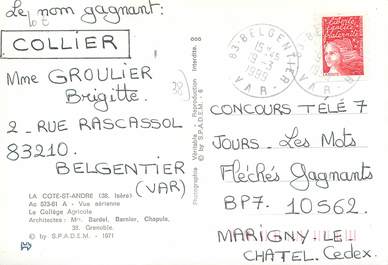 Le nom gagnant:
COLLIER
Mme GROULIER
Brigitte.
2 - RUE RASCASSOL
83210.
BELGENTIER
(VAR)
LA COTE-ST-ANDRÉ (38. Isère)
Ac 573-61 A - Vue aérienne
Le Collège Agricole
Architectes: Mrs. Bardel, Barnier, Chapuis,
38. Grenoble.
© by S.P.A.D.E.M. - 1971
Photographie Véritable - Reproduction Interdite.
© by S.P.A.D.E.M. 6
38
83-BELGENTIER
VAR
CONCOURS TÉLÉ 7
JOURS - Les Mots
Fléchés Gagnants
BP7. 10562.
MARIGNY LE
CHATEL. Cedex.